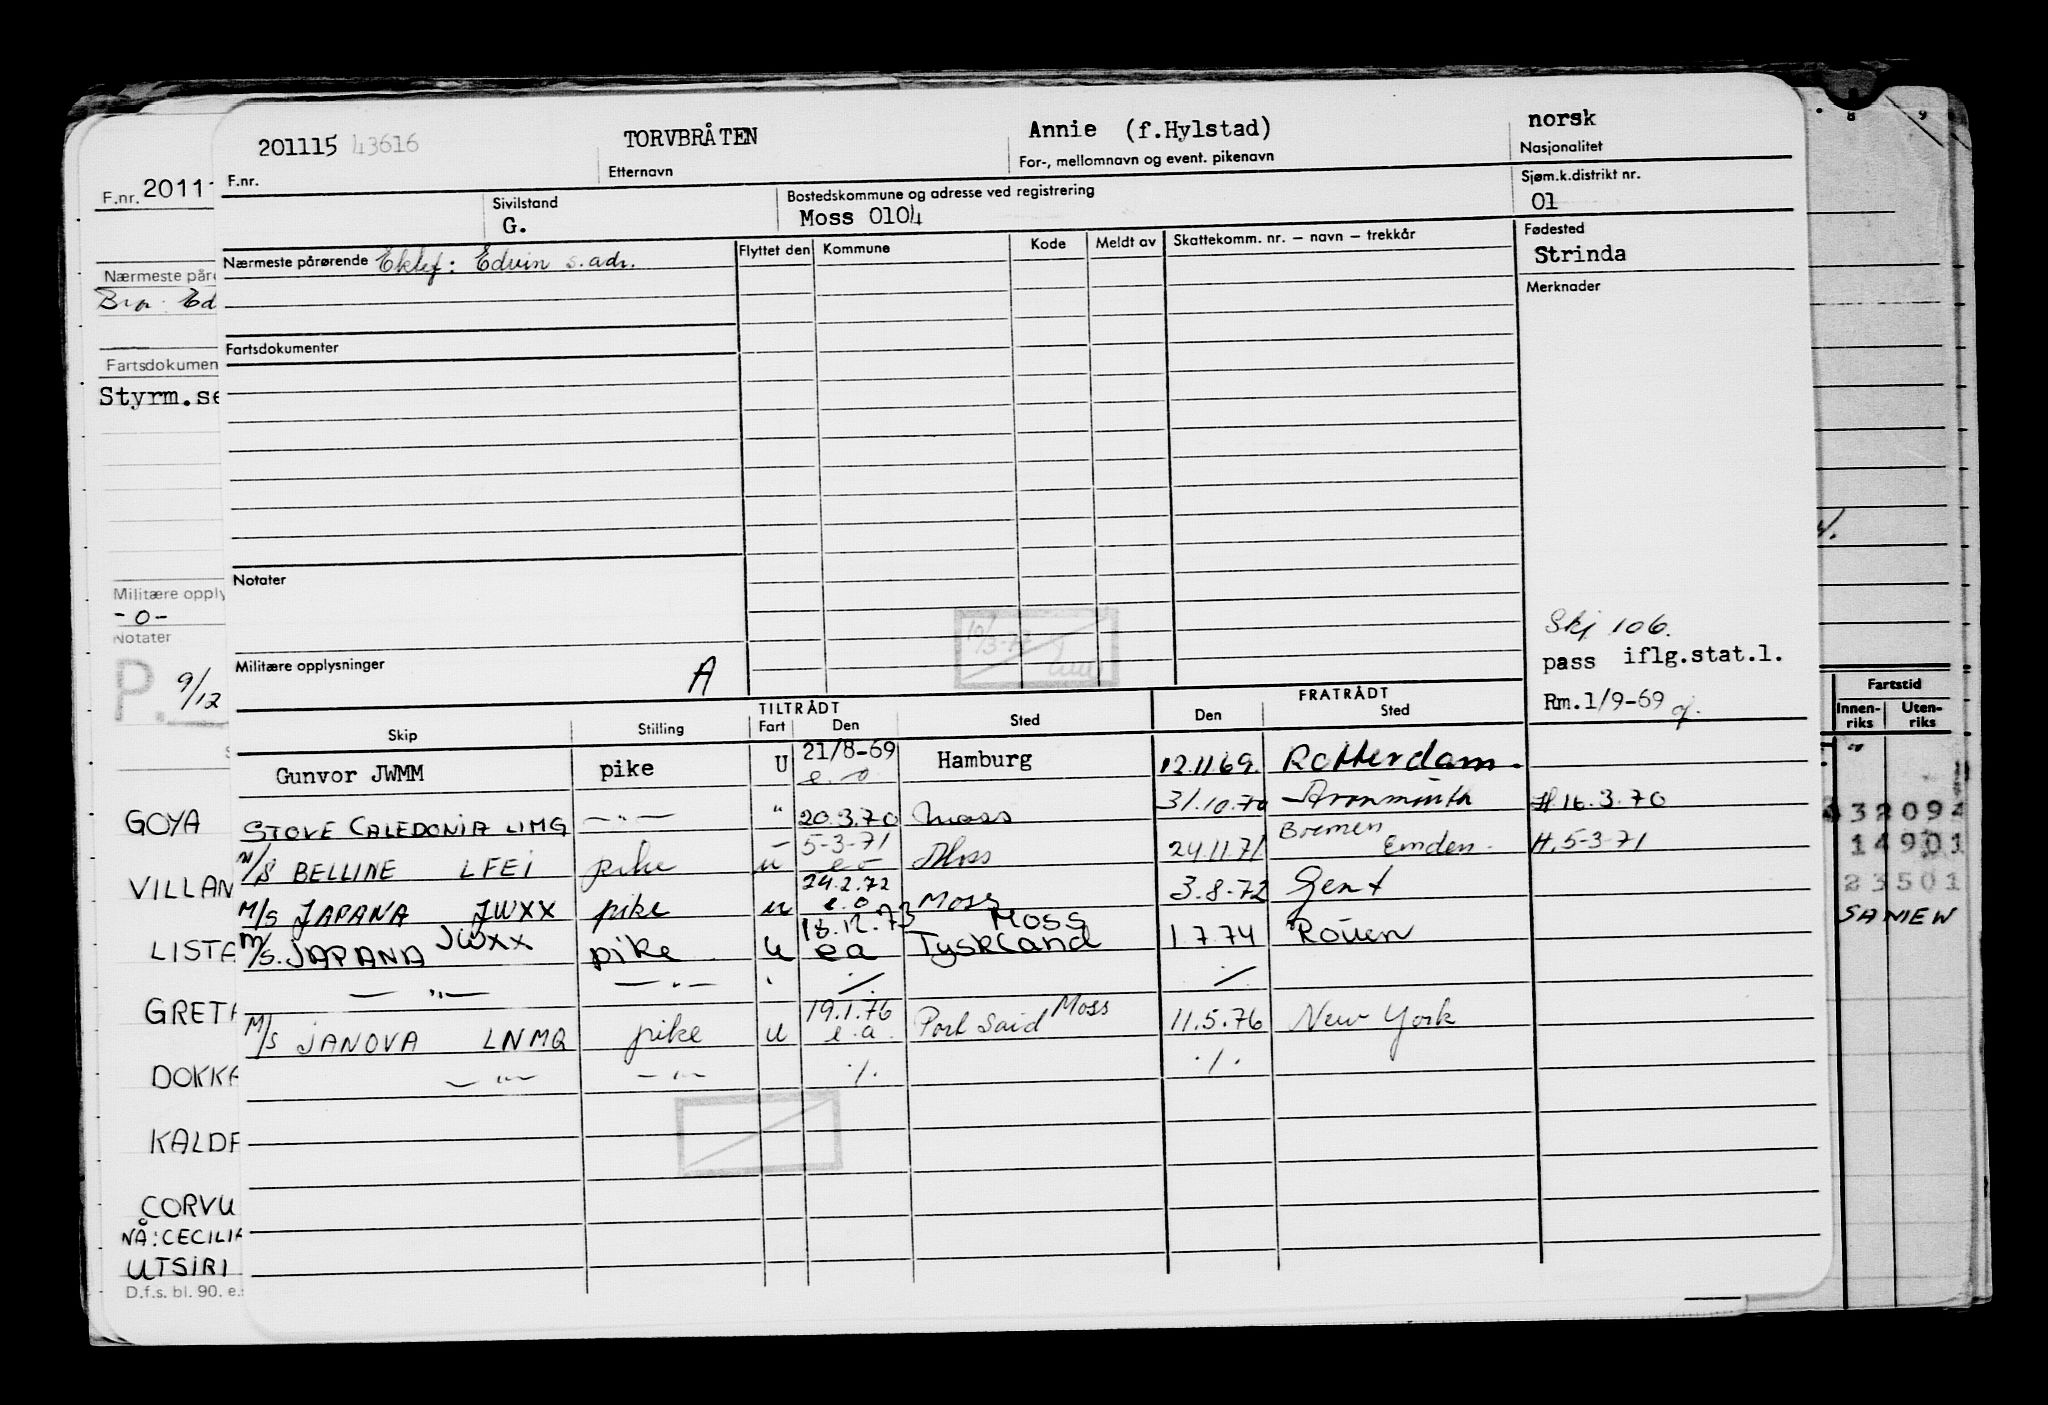 201115 43616 TORVBRÅTEN Annie (f.Hylstad) norsk
F.nr. Etternavn For-, mellomnavn og event. pikenavn Nasjonalitet
Sivilstand Bostedskommune og adresse ved registrering Sjøm.k.distrikt nr.
G. Moss 0104 01
Nærmeste pårørende Ektef: Edvin s.adr. Flyttet den Kommune Kode Meldt av Skattekomm. nr. – navn – trekkår Fødested
Strinda
Merknader
Fartsdokumenter
Notater
Skj 106.
pass iflg.stat.l.
Militære opplysninger A
Rm.1/9-69
TILTRÅDT FRATRÅDT
Skip Stilling Fart Den Sted Den Sted
Gunvor JWMM pike U 21/8-69 e.o Hamburg 12.11.69. Rotterdam.
STOVE CALEDONIA LIMG —"— " 20.3.70 Moss 31.10.70 Avonmouth H.16.3.70
M/S BELLINE LFEI pike u 5-3-71 e o Moss 24.11.71 Bremen Emden. H.5-3-71
M/S JAPANA JWXX pike u 29.2.72 e.o Moss 3.8-72 Gent
M/S. JAPANA JWXX pike u 18.12.73 ea Moss Tyskland 1 7.74 Rouen
—"— —"— " ./. ./.
M/S JANOVA LNMQ pike u 19.1.76 e.a. Port Said Moss 11.5.76 New York
—"— —"— ./. ./.
F.nr. 2011
Nærmeste pårø
Fartsdokumen
Styrm.se
Militære opply
-0-
Notater
P. 9/12
GOYA
VILLAN
LISTA
GRETA
DOKKA
KALDF
CORVU
NÅ: CECILIA
UTSIRI
D.f.s. bl. 90. e.
8 9
Fartstid
Innen-riks Uten-riks
332094
14901
23501
SANIEW